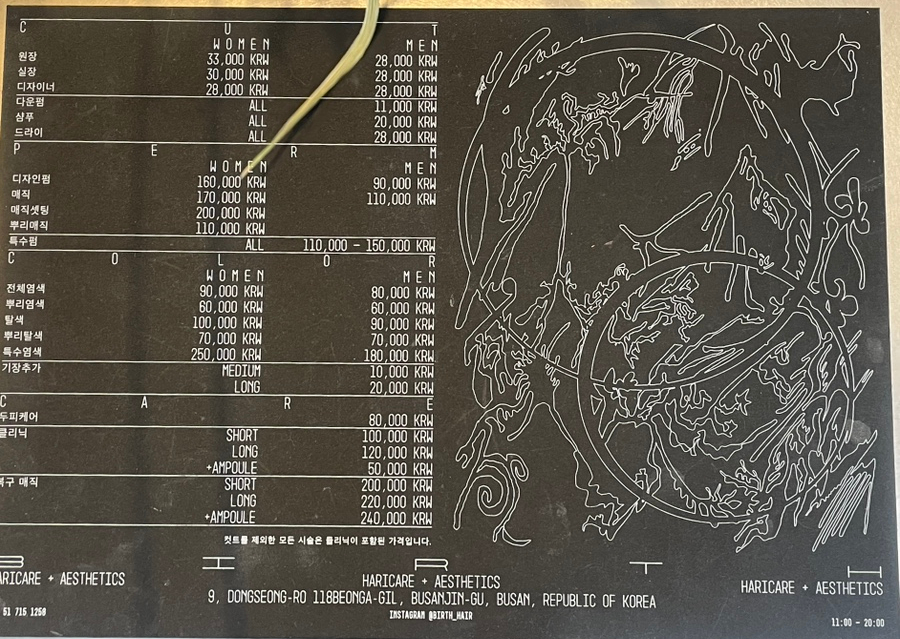 C U T
WOMEN MEN
원장 33,000 KRW 28,000 KRW
실장 30,000 KRW 28,000 KRW
디자이너 28,000 KRW 28,000 KRW
다운펌 ALL 11,000 KRW
샴푸 ALL 20,000 KRW
드라이 ALL 28,000 KRW
P E R M
WOMEN MEN
디자인펌 160,000 KRW 90,000 KRW
매직 170,000 KRW 110,000 KRW
매직셋팅 200,000 KRW
뿌리매직 110,000 KRW
특수펌 ALL 110,000 - 150,000 KRW
C O L O R
WOMEN MEN
전체염색 90,000 KRW 80,000 KRW
뿌리염색 60,000 KRW 60,000 KRW
탈색 100,000 KRW 90,000 KRW
뿌리탈색 70,000 KRW 70,000 KRW
특수염색 250,000 KRW 180,000 KRW
기장추가 MEDIUM 10,000 KRW
LONG 20,000 KRW
C A R E
두피케어 80,000 KRW
클리닉 SHORT 100,000 KRW
LONG 120,000 KRW
+AMPOULE 50,000 KRW
복구 매직 SHORT 200,000 KRW
LONG 220,000 KRW
+AMPOULE 240,000 KRW
컷트를 제외한 모든 시술은 클리닉이 포함된 가격입니다.
B I R T H
HARICARE + AESTHETICS HARICARE + AESTHETICS HARICARE + AESTHETICS
9, DONGSEONG-RO 118BEONGA-GIL, BUSANJIN-GU, BUSAN, REPUBLIC OF KOREA
51 715 1250 INSTAGRAM @BIRTH_HAIR 11:00 - 20:00